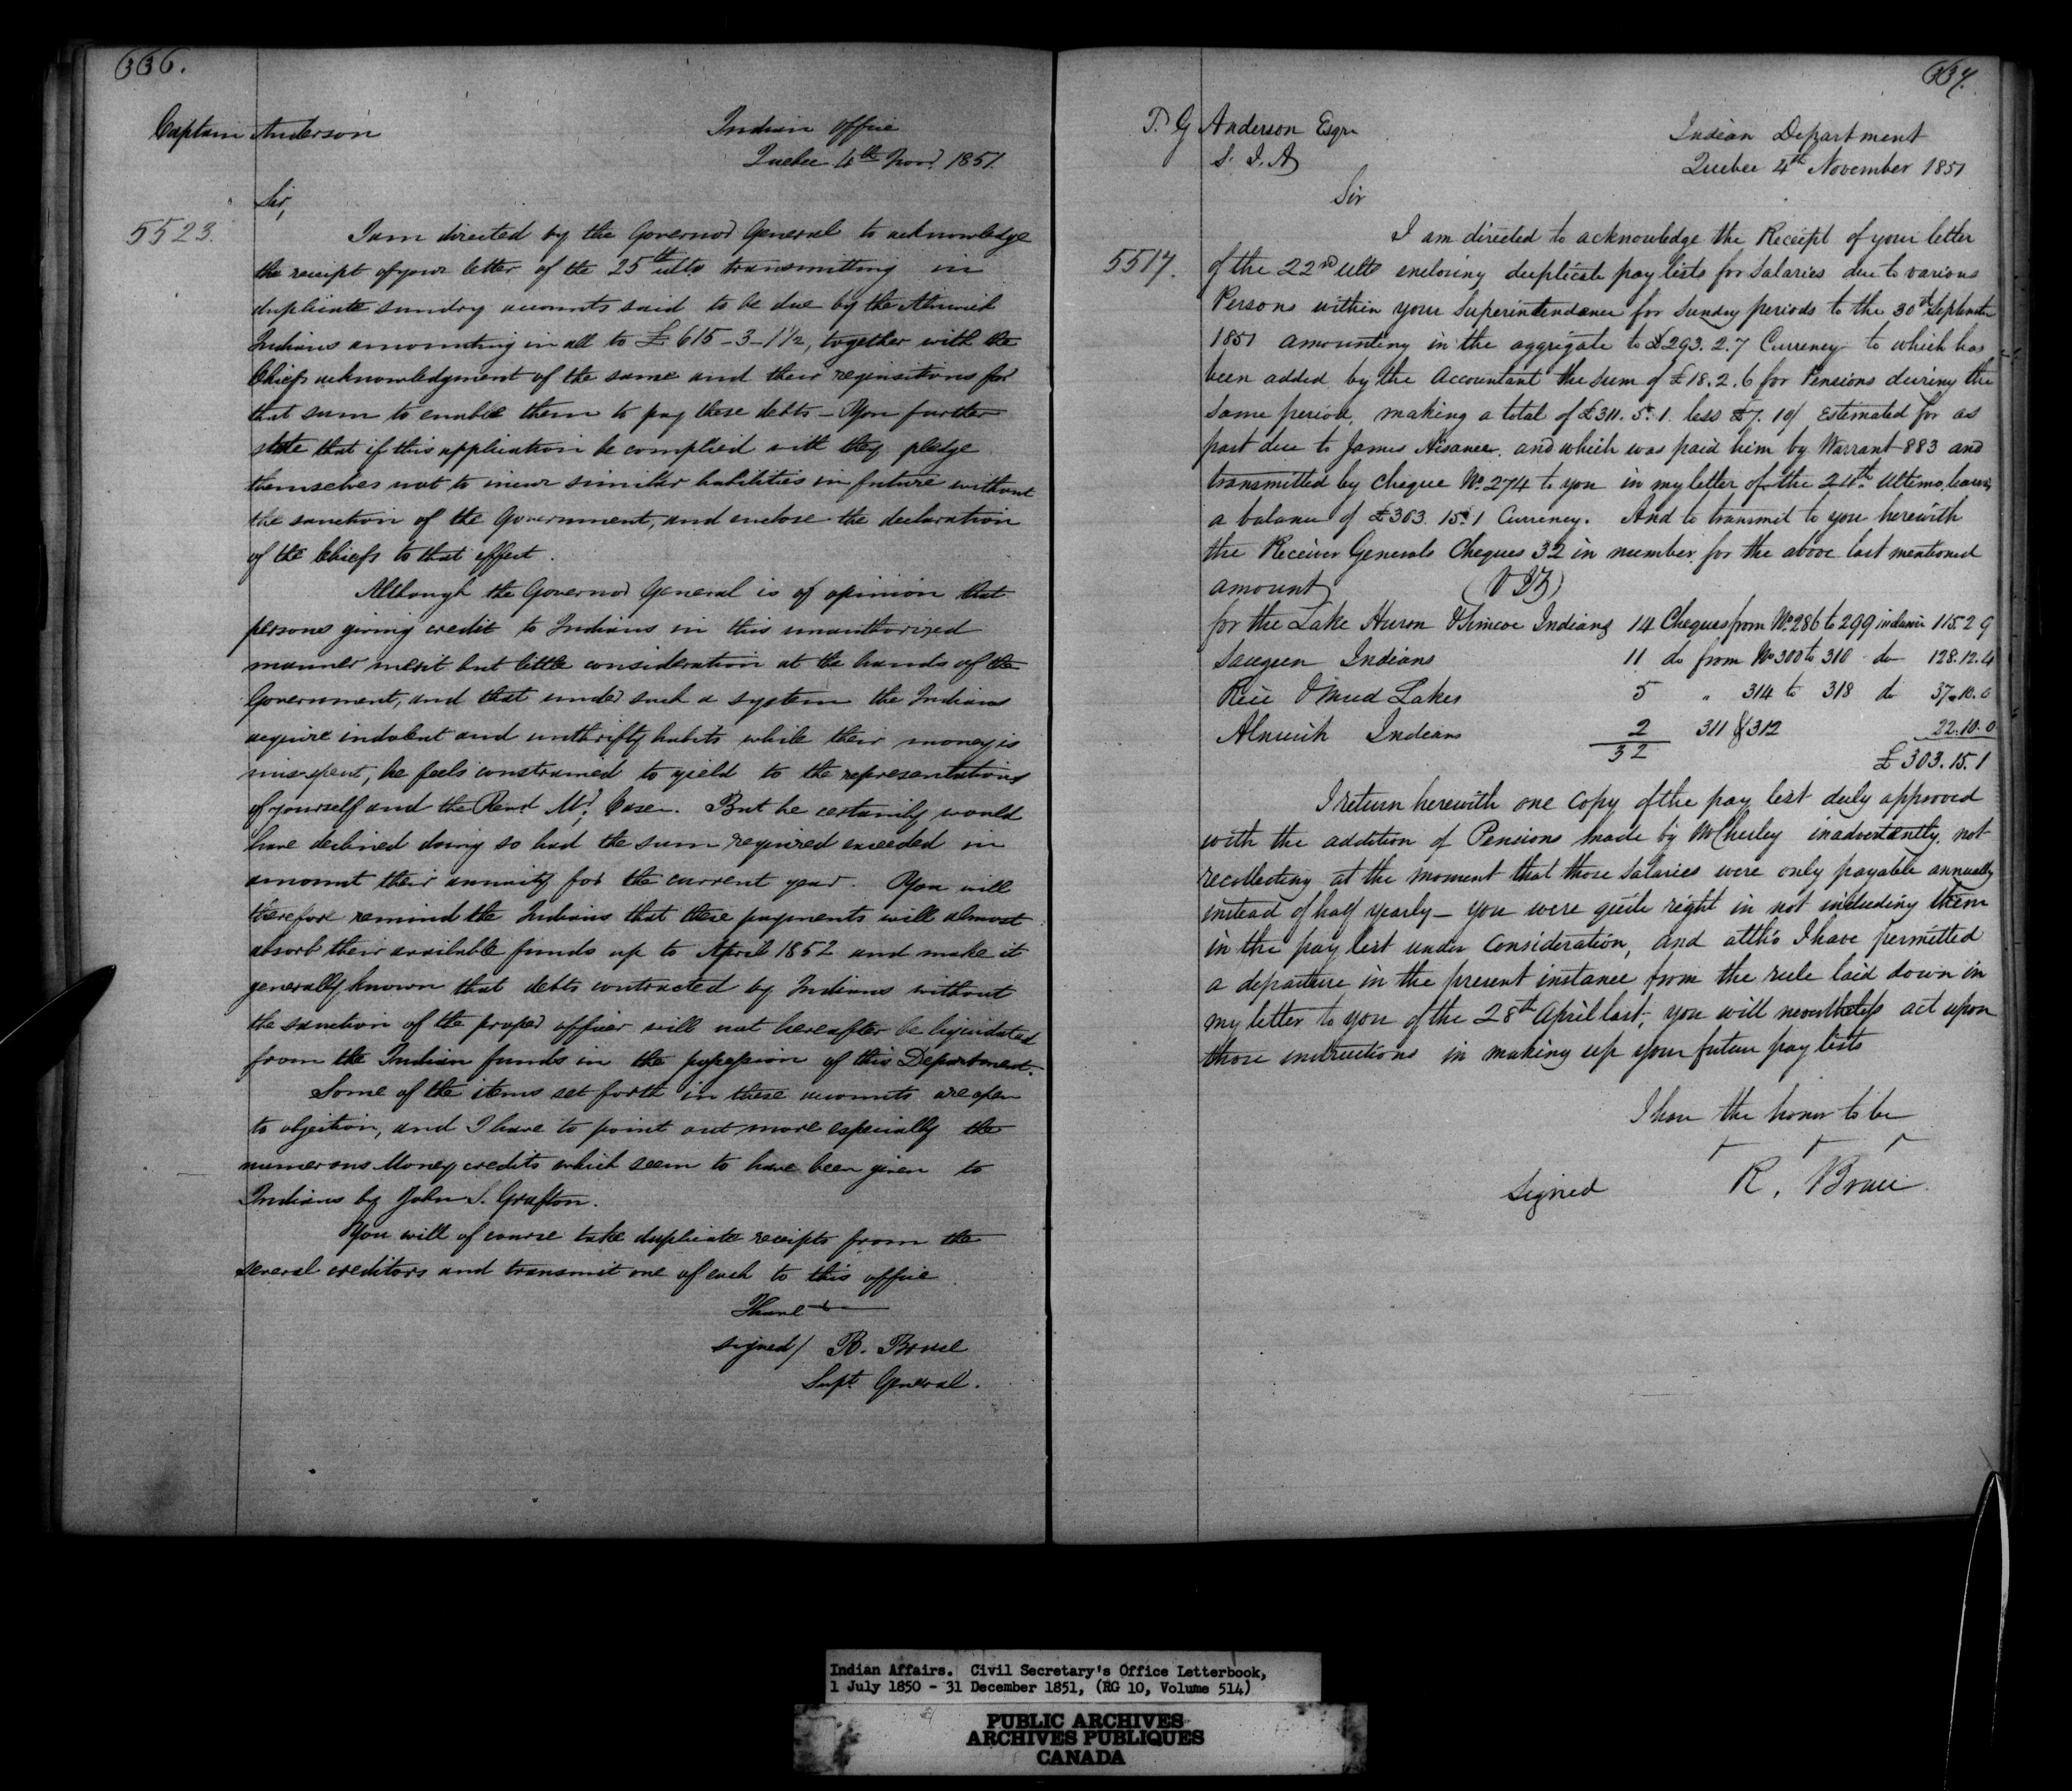 336.
Captain Anderson
Indian Office
Quebec 4th Novr 1851.
Sir,
5523.
I am directed by the Governor General to acknowledge
the receipt of your letter of the 25th ulto transmitting in
duplicate sundry accounts said to be due by the Alnwick
Indians amounting in all to £615-3-1½, together with the
Chiefs acknowledgment of the same and their requisitions for
that sum to enable them to pay these debts - You further
state that if this application be complied with they pledge
themselves not to incur similar liabilities in future without
the sanction of the Government, and enclose the declaration
of the Chiefs to that effect.
Although the Governor General is of opinion that
persons giving credit to Indians in this unauthorized
manner merit but little consideration at the hands of the
Government, and that under such a system the Indians
acquire indolent and unthrifty habits while their money is
mis-spent, he feels constrained to yield to the representations
of yourself and the Revd Mr. Case. But he certainly would
have declined doing so had the sum required exceeded in
amount their annuity for the current year. You will
therefore remind the Indians that these payments will almost
absorb their available funds up to April 1852 and make it
generally known that debts contracted by Indians without
the sanction of the proper officer will not hereafter be liquidated
from the Indian funds in the possession of this Department.
Some of the items set forth in these accounts are open
to objection, and I have to point out more especially the
numerous Money credits which seem to have been given to
Indians by John S. Grafton.
You will of course take duplicate receipts from the
several creditors and transmit one of each to this office.
I have
signed/ R. Bruce
Supt General.
337.
T. G Anderson Esqre
S. I. A
Indian Department
Quebec 4th November 1851
Sir
I am directed to acknowledge the Receipt of your letter
5517.
of the 22nd ulto enclosing duplicate pay lists for Salaries due to various
Persons within your Superintendance for Sunday periods to the 30th September
1851 amounting in the aggregate to £293. 2. 7 Currency to which has
been added by the Accountant the sum of £18. 2. 6 for Pensions during the
same period, making a total of £311. 5. 1. less £7. 10/ Estimated for as
part due to James and which was paid him by Warrant 883 and
transmitted by Cheque No. 274 to you in my letter of the 24th Ultimo, leaving
a balance of £303. 15. 1 Currency. And to transmit to you herewith
the Receiver Generals Cheques 32 in number for the above last mentioned
amount (VIZ)
for the Lake Huron & Simcoe Indians 14 Cheques from No. 286 to 299 inclusive 115. 2 9
Saugeen Indians 11 do from No 300 to 310 do 128. 12. 4
Rice & Mud Lakes 5 " 314 to 318 do 37. 10. 0
Alnwick Indians 2 311 & 312 22. 10. 0
32 £303. 15. 1
I return herewith one Copy of the pay list duly approved
with the addition of Pensions made by inadvertently, not
recollecting at the moment that those Salaries were only payable annually
instead of half yearly - you were quite right in not including them
in the pay list under Consideration, and altho I have permitted
a departure in the present instance from the rule laid down in
my letter to you of the 28th April last, you will nevertheless act upon
those instructions in making up your future pay lists
I have the honor to be
Signed R. Bruce
Indian Affairs. Civil Secretary's Office Letterbook,
1 July 1850 - 31 December 1851, (RG 10, Volume 514)
PUBLIC ARCHIVES
ARCHIVES PUBLIQUES
CANADA